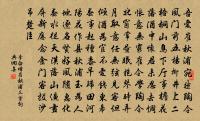 吾愛崔秋浦宛然陶令
風門前五楊柳井上二
梧桐山鳥下廳事簷花
落酒中懷君未忍去惆
悵意無窮崔令學陶令
北窗常晝眠抱琴時弄
月取意任無弦見客但
傾酒為官不愛錢東皋
春事起種黍早歸田河
陽花作縣秋浦玉為人
地逐名賢好風隨惠化
春水從天漢落山逼畫
屏新應念金門客投沙
吊楚臣
李白贈崔秋浦三首